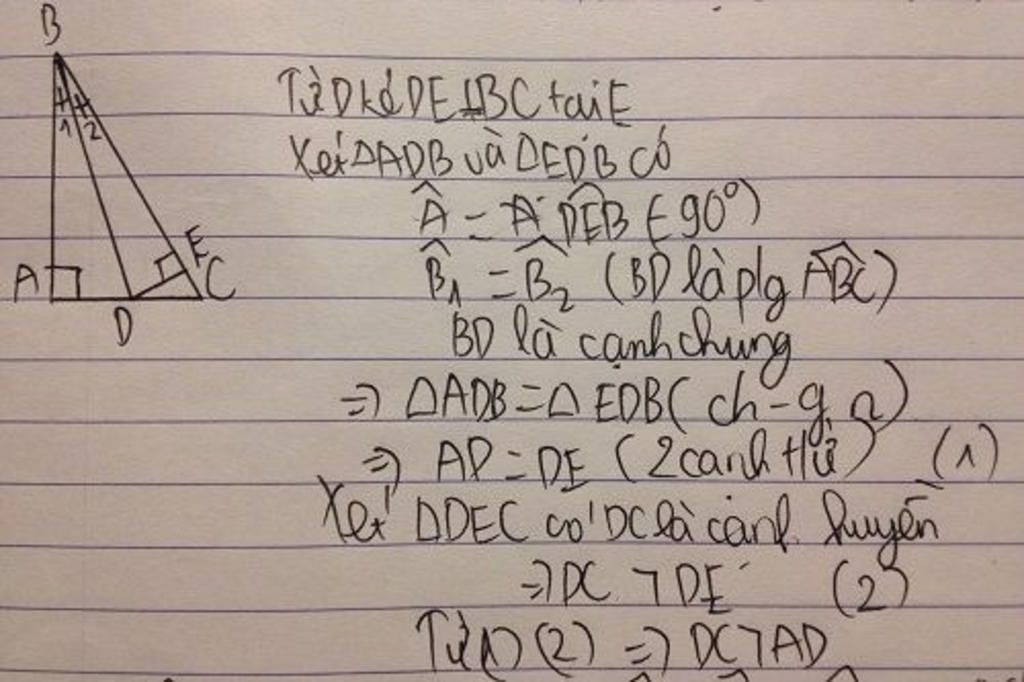 B
1 2
A
E
C
D
Từ D kẻ DE ⊥ BC tại E
Xét ΔADB và ΔEDB có
Â = DÊB (= 90°)
B̂₁ = B̂₂ (BD là p/g AB̂C)
BD là cạnh chung
=> ΔADB = ΔEDB (ch - g.n)
=> AD = DE (2 cạnh t/ứ) (1)
Xét ΔDEC có DC là cạnh huyền
=> DC > DE (2)
Từ (1) (2) => DC > AD